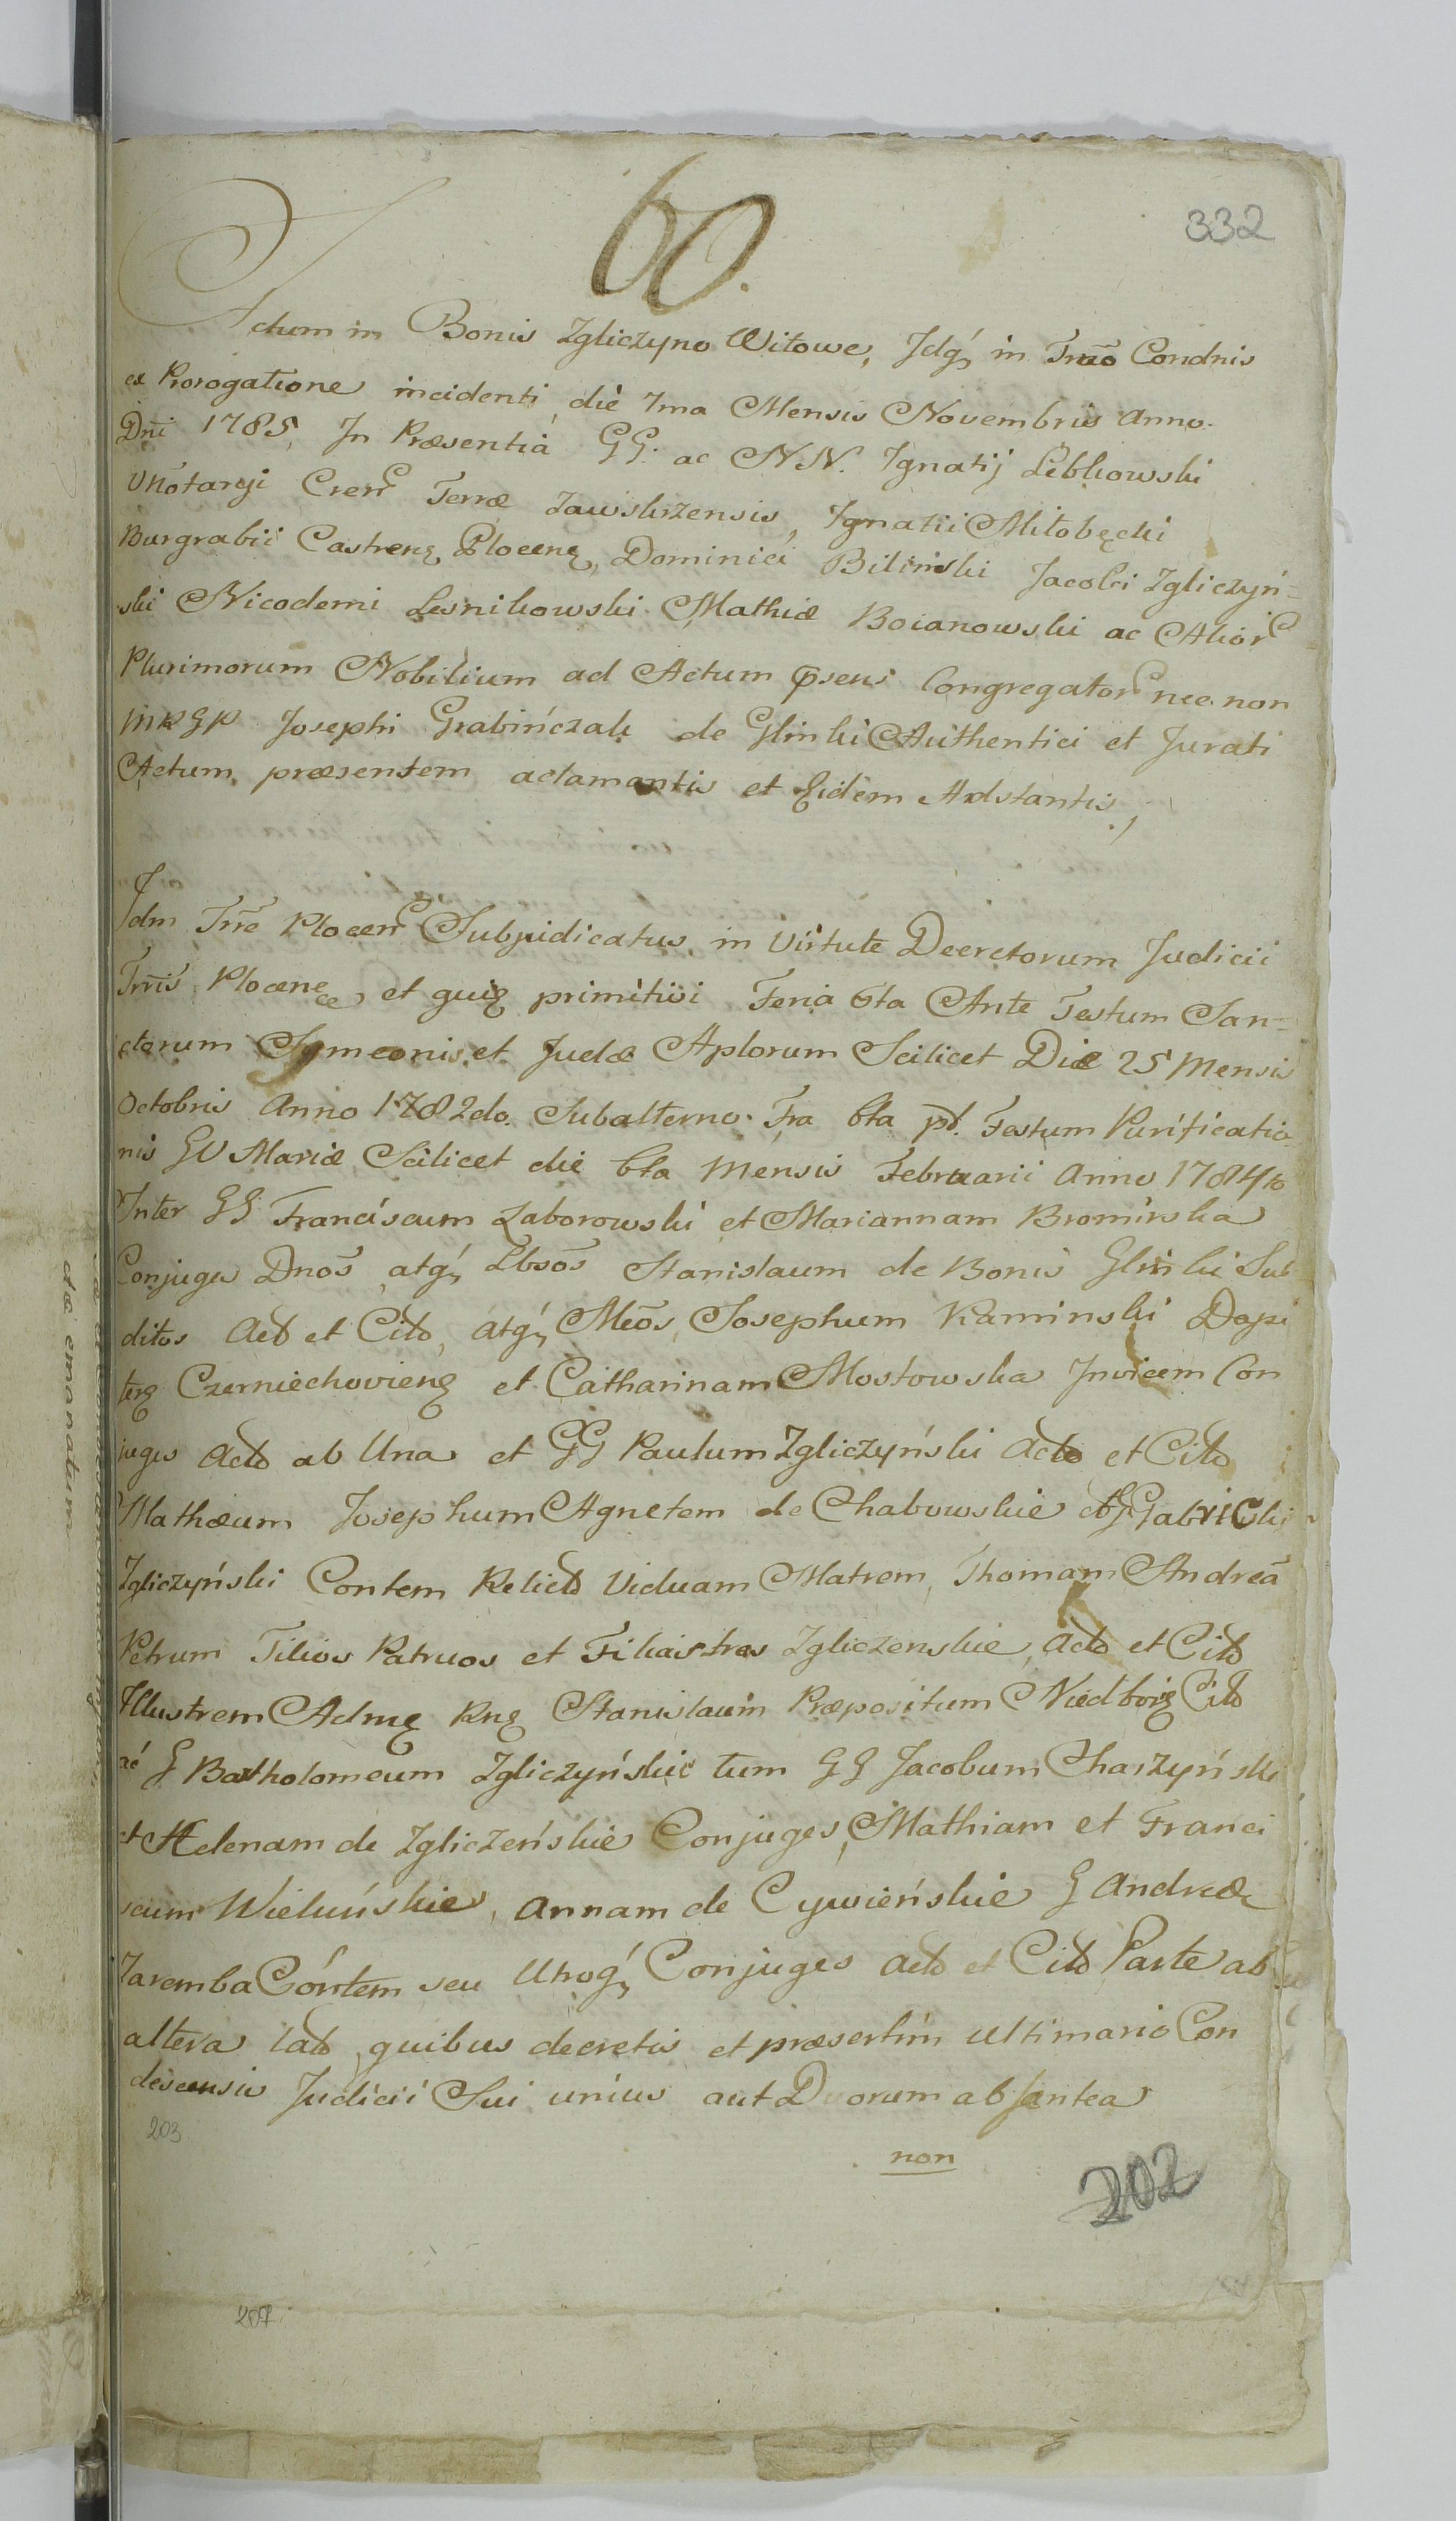 60.
332
Actum in Bonis Zgliczyno Witowe, Idq, in Trno Condnis
ex Prorogatione incidenti die 7ma Mensis Novembris Anno
Dni 1785, In Præsentia GG. ac NN. Ignatij Lebkowski
VNotarji Terræ Zawskrzensis, Ignatii Miłobęcki
Burgrabii Castrens Plocens, Dominici Bilinski Jacobi Zgliczyń-
ski Nicodemi Lesnikowski Mathiæ Boianowski ac Alior
Plurimorum Nobilium ad Actum psens Congregator nec non
MRGR Josephi Grabińczak de Glinki Authentici et Jurati
Actum præsentem aclamantis et Eidem Adstantis,
Idm Trre Plocen Subjudicatus in Virtute Decretorum Judicii
Trris Plocens et primitivi Feria 6ta Ante Festum San-
ctorum Symeonis et Judæ Aplorum Scilicet Die 25 Mensis
Octobris Anno 1782do. Subalterno Fra 6ta pt. Festum Purificatio
nis GV Mariæ Scilicet die 6ta Mensis Februarii Anno 1784to
Inter GG Franciscum Zaborowski et Mariannam Bromirska
Conjuges Dnos atq, Lbsos Stanislaum de Bonis Glinki Sub
ditos Acto et Cito, atq, Meos Josephum Kaminski Dapi
fers Czerniechoviens et Catharinam Mostowska Invicem Con
juges Acto ab Una et GG Paulum Zgliczyński Acto et Cito
Mathæum Josephum Agnetem de Chabowskie Gabrieli
Zgliczyński Contem Relicto Viduam Matrem, Thomam Andreã
Petrum Filios Patruos et Filiastros Zgliczenskie, Acto et Cito
Illustrem Adme Rne Stanislaum Præpositum Niedbois Cito
ac G Bartholomeum Zgliczyńskie tum GG Jacobum Charzyński
et Helenam de Zgliczeńskie Conjuges, Mathiam et Franci
scum Wieluńskie, Annam de Cywieńskie G Andreæ
Zaremba Contem seu Utroq, Conjuges Acto et Cito Parte ab
altera lato quibus decretis et præsertim ultimario Con
descensis Judicii Sui unius aut Duorum ab antea
non
203
202
207